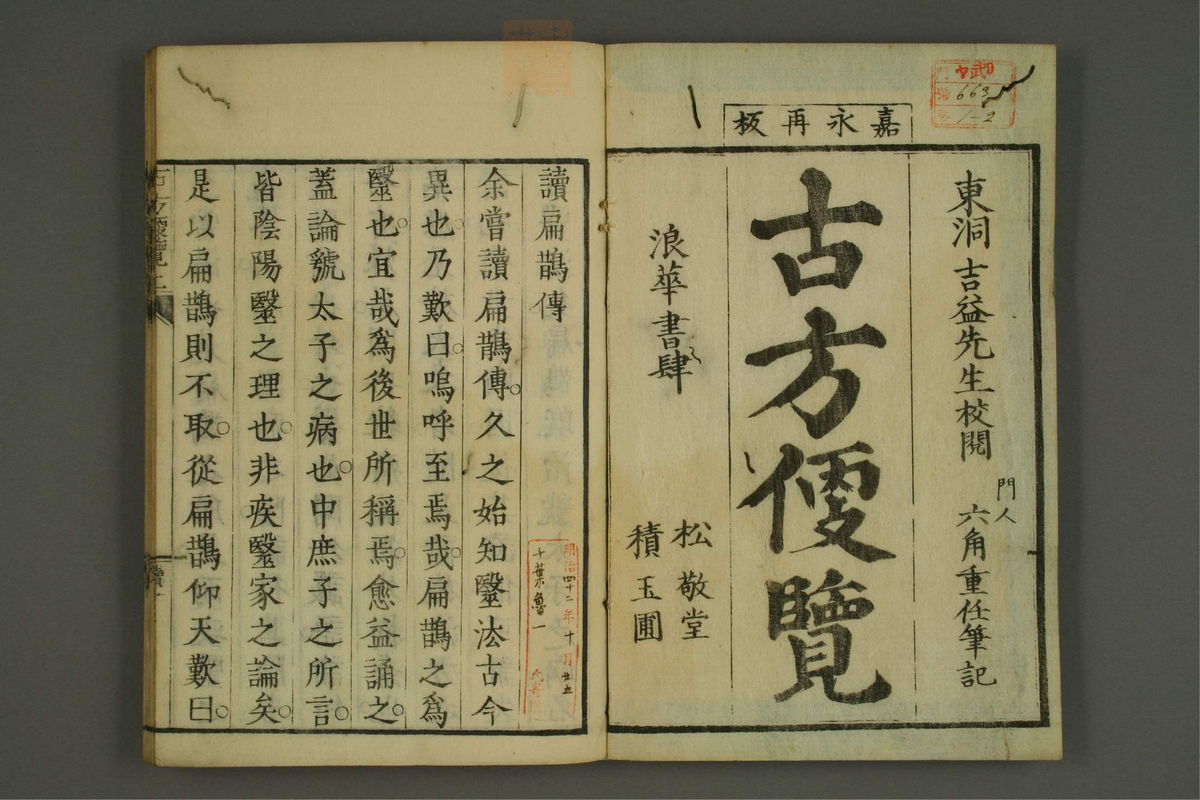 嘉永再板
東洞吉益先生校閲 門人 六角重任筆記
古方便覽
浪華書肆 松敬堂
積玉圃
門
武
663
1-2
讀扁鵲傳
余嘗讀扁鵲傳。久之始知毉法古今
異也。乃歎曰。嗚呼至焉哉。扁鵲之爲
毉也。宜哉爲後世所稱焉。愈益誦之。
蓋論虢太子之病也。中庶子之所言。
皆陰陽毉之理也。非疾毉家之論矣。
是以扁鵲則不取。從扁鵲仰天歎曰。
明治四十二年十月廿五
千葉魯一
氏寄
古方便覽上
讀一